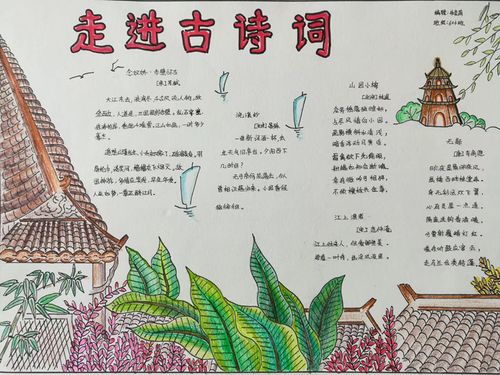 走进古诗词
念奴娇·赤壁怀古
[宋]苏轼
大江东去,浪淘尽,千古风流人物。故
垒西边,人道是,三国周郎赤壁。乱石穿空,
惊涛拍岸,卷起千堆雪。江山如画,一时多少
豪杰。
遥想公瑾当年,小乔初嫁了,雄姿英发。
羽扇纶巾,谈笑间,樯橹灰飞烟灭。故
国神游,多情应笑我,早生华发。
人生如梦,一尊还酹江月。
浣溪沙
晏殊
一曲新词酒一杯,去
年天气旧亭台。夕阳西下
几时回?
无可奈何花落去,似
曾相识燕归来。小园香径
独徘徊。
山园小梅
[北宋]林逋
众芳摇落独暄妍,
占尽风情向小园。
疏影横斜水清浅,
暗香浮动月黄昏。
霜禽欲下先偷眼,
粉蝶如知合断魂。
幸有微吟可相狎,
不须檀板共金樽。
江上渔者
[宋]范仲淹
江上往来人,但爱鲈鱼美。
君看一叶舟,出没风波里。
编辑:
班级:
无题
[唐]李商隐
昨夜星辰昨夜风,
画楼西畔桂堂东。
身无彩凤双飞翼,
心有灵犀一点通。
隔座送钩春酒暖,
分曹射覆蜡灯红。
嗟余听鼓应官去,
走马兰台类转蓬